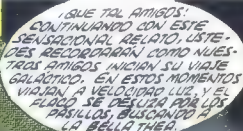 ¡QUE TAL AMIGOS!
CONTINUANDO CON ESTE
SENSACIONAL RELATO, USTE-
DES RECORDARAN COMO NUES-
TROS AMIGOS INICIAN SU VIAJE
GALACTICO. EN ESTOS MOMENTOS
VIAJAN A VELOCIDAD LUZ, Y EL
FLACO SE DESLIZA POR LOS
PASILLOS, BUSCANDO A
LA BELLA THEA